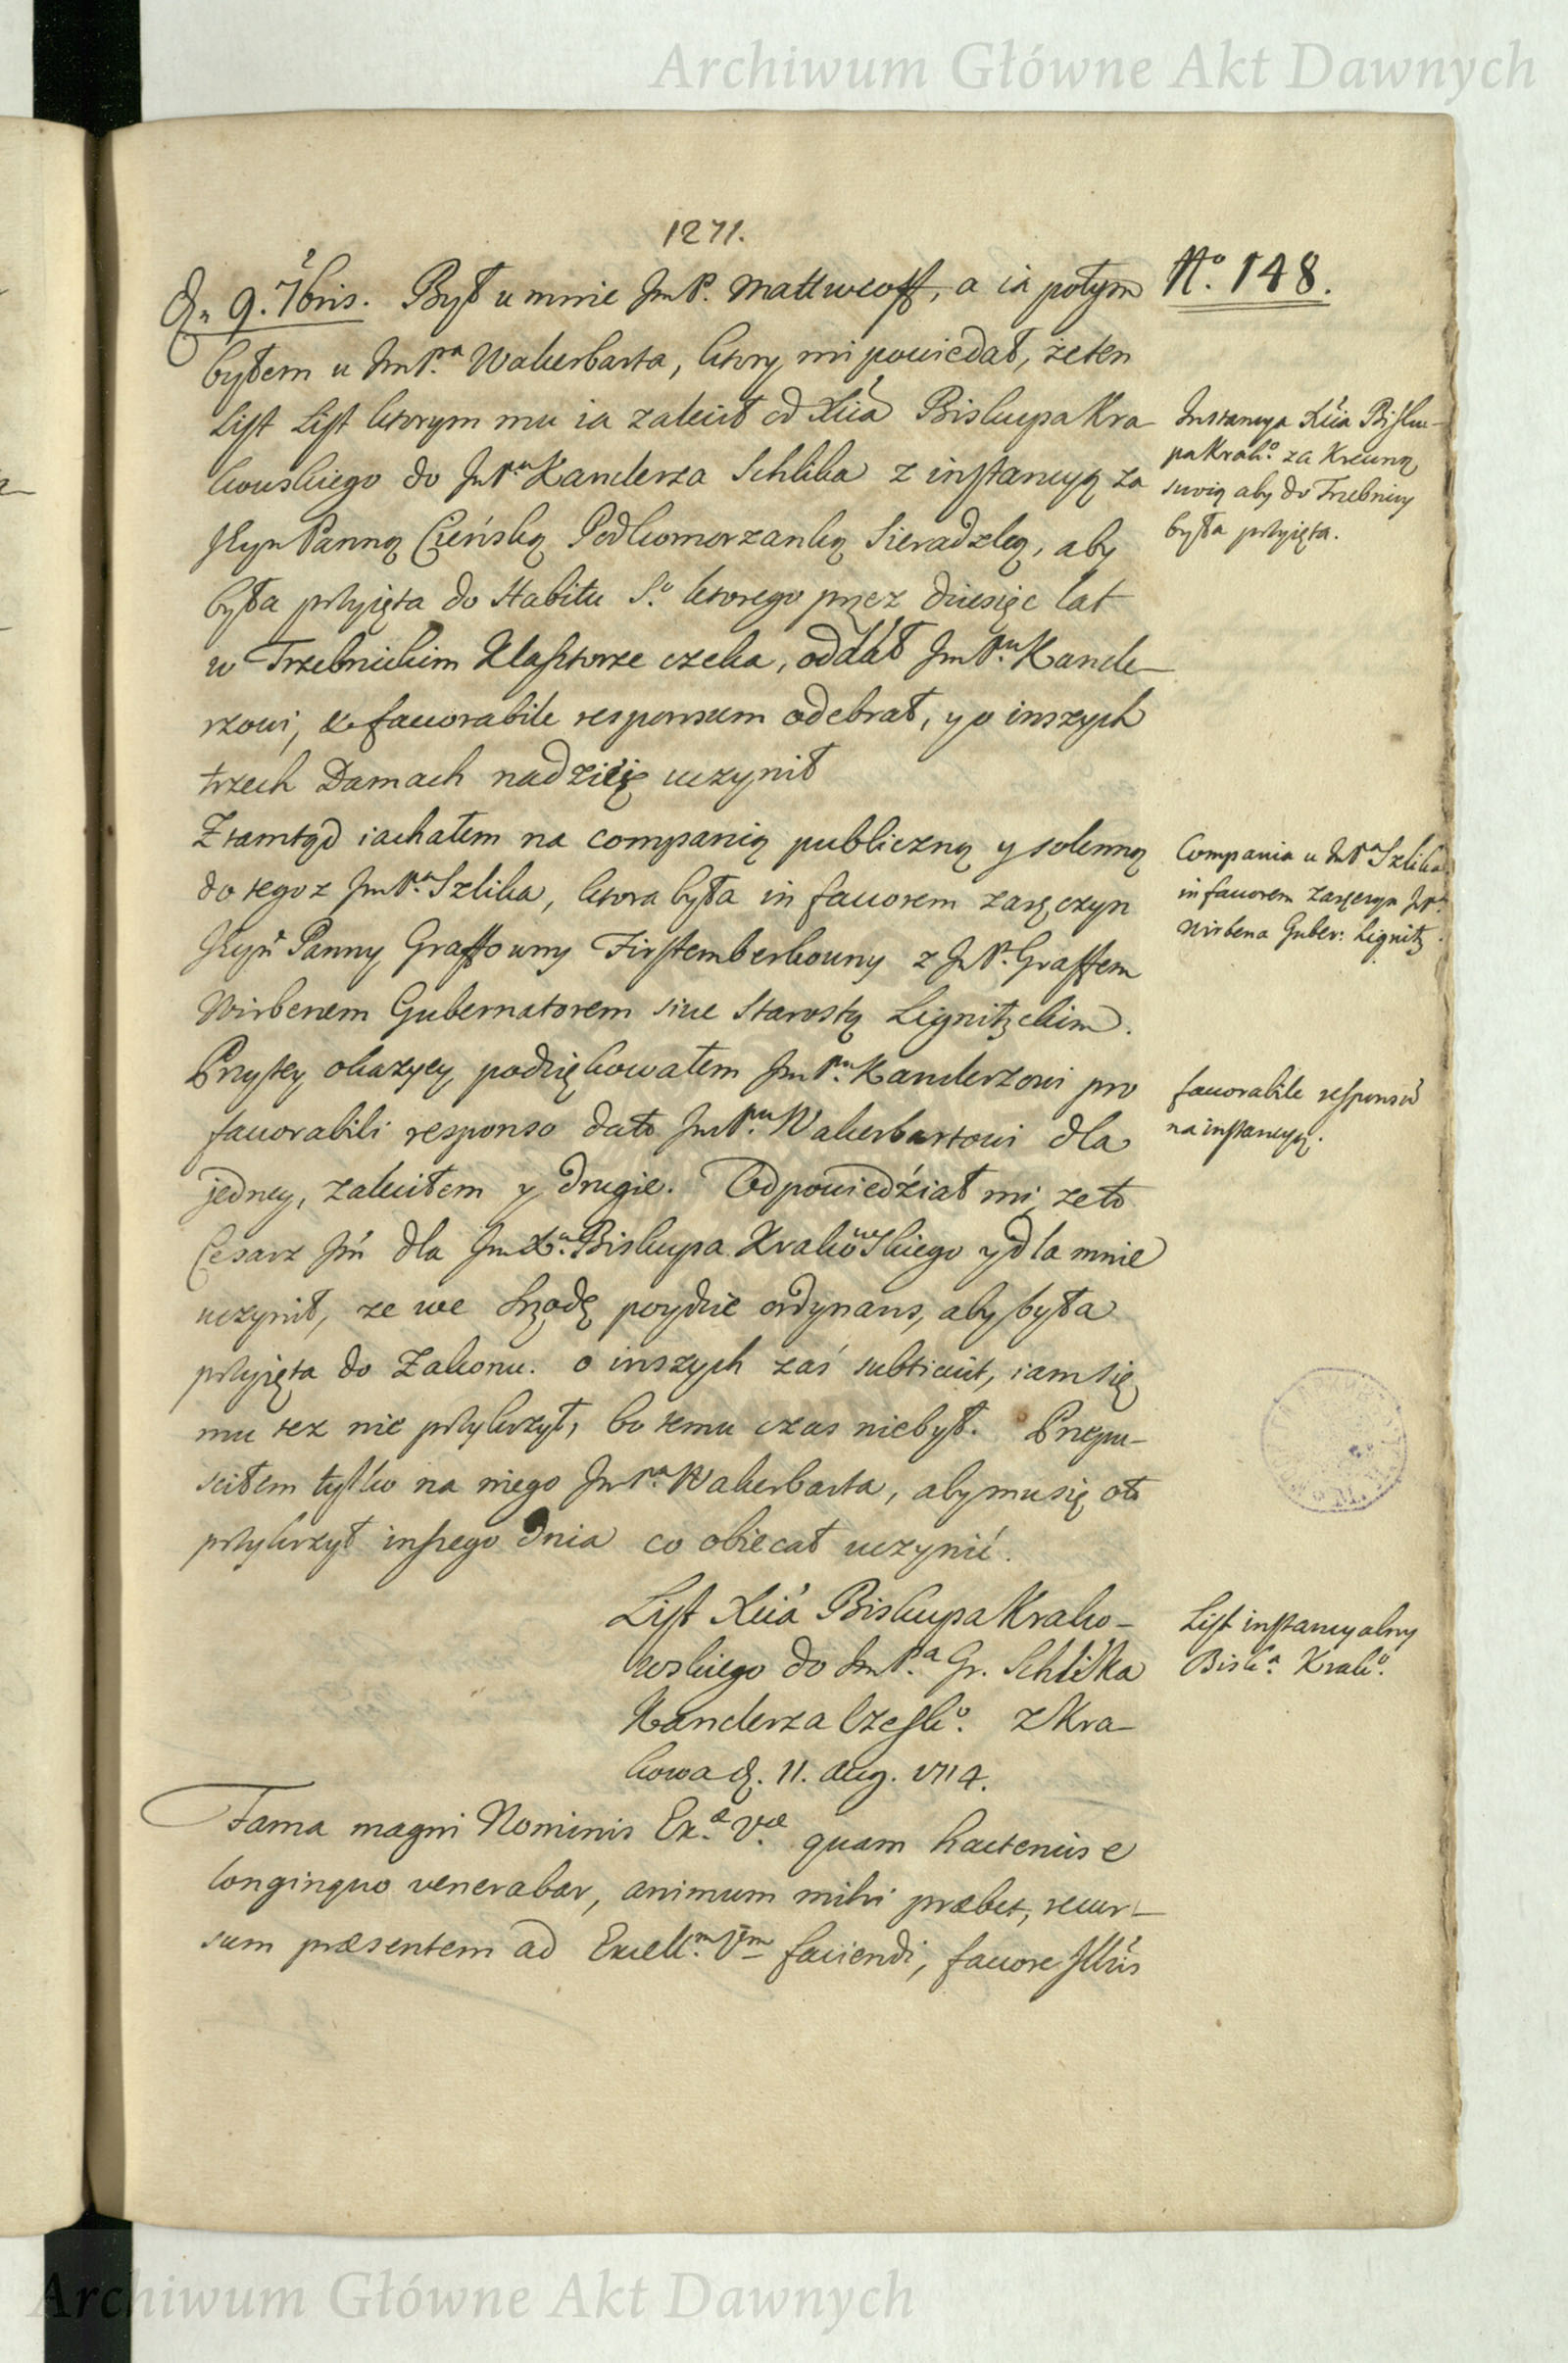 Archiwum Główne Akt Dawnych
1271.
Dn 9. 7bris. Był u mnie JmP. Mattweoff, a ia potym
N.º 148.
byłem u JmP.ª Wakerbarta, ktory mi powiedał, że ten
List List ktorym mu ia zalecił od Xcia Biskupa Kra
kowskiego do JmP.u Kanclerza Schlika z instancyą za
Panną Cieńską Podkomorzanką Sieradzką, aby
była przyięta do Habitu S.º ktorego przez dziesięć lat
w Trzebnickim Klasztorze czeka, oddał JmP.u Kancle-
rzowi, & favorabile responsum odebrał, y o inszych
trzech Damach nadzieię uczynił
Instancya Xcia Bisku-
pa Krak.º za Krewną
swoią aby do Trzebnicy
była przyięta.
Ztamtąd iachałem na companią publiczną y solenną
do tegoz JmP.ª Szlika, ktora była in favorem zaręczyn
Panny Graffowny Firstemberkowny z JmP. Graffem
Wirbenem Gubernatorem sive Starostą Lignitzckim.
Compania u JmP.ª Szlika
in favorem zaręczyn JmP.
Wirbena Guber: Lignitz.
Przy tey okazyey podziękowałem JmP.u Kanclerzowi pro
favorabili responso dato JmP.u Wakerbartowi dla
jedney, zaleciłem y drugie. Odpowiedział mi, ze to
Cesarz Jm dla JmX.ª Biskupa Krakowskiego y dla mnie
uczynił, ze we Srzodę poydzie ordynans, aby była
przyięta do Zakonu. o inszych zaś subticuit, iam się
mu tez nie przykrzył, bo temu czas niebył. Przepu-
sciłem tylko na niego JmP.ª Wakerbarta, aby mu się oto
przykrzył inszego dnia co obiecał uczynić.
favorabile responsũ
na instancyą.
List Xcia Biskupa Krako-
wskiego do JmP.ª Gr. Schlika
Kanclerza Czesk.º z Kra-
kowa d. 11. Aug. 1714.
List instancyalny
Bisk.ª Krak.º
Fama magni Nominis Ex.æ V.æ quam hactenus e
longinquo venerabar, animum mihi præbet, recur-
sum præsentem ad Excell.m V̄m faciendi, favore Illius
Archiwum Główne Akt Dawnych